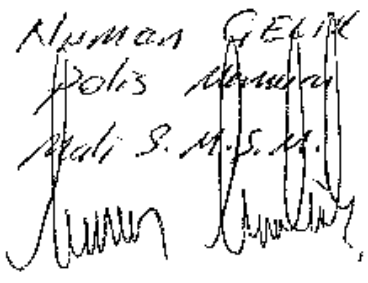 Numan ÇELİK
Polis Memuru
Mali S. M.S.M.